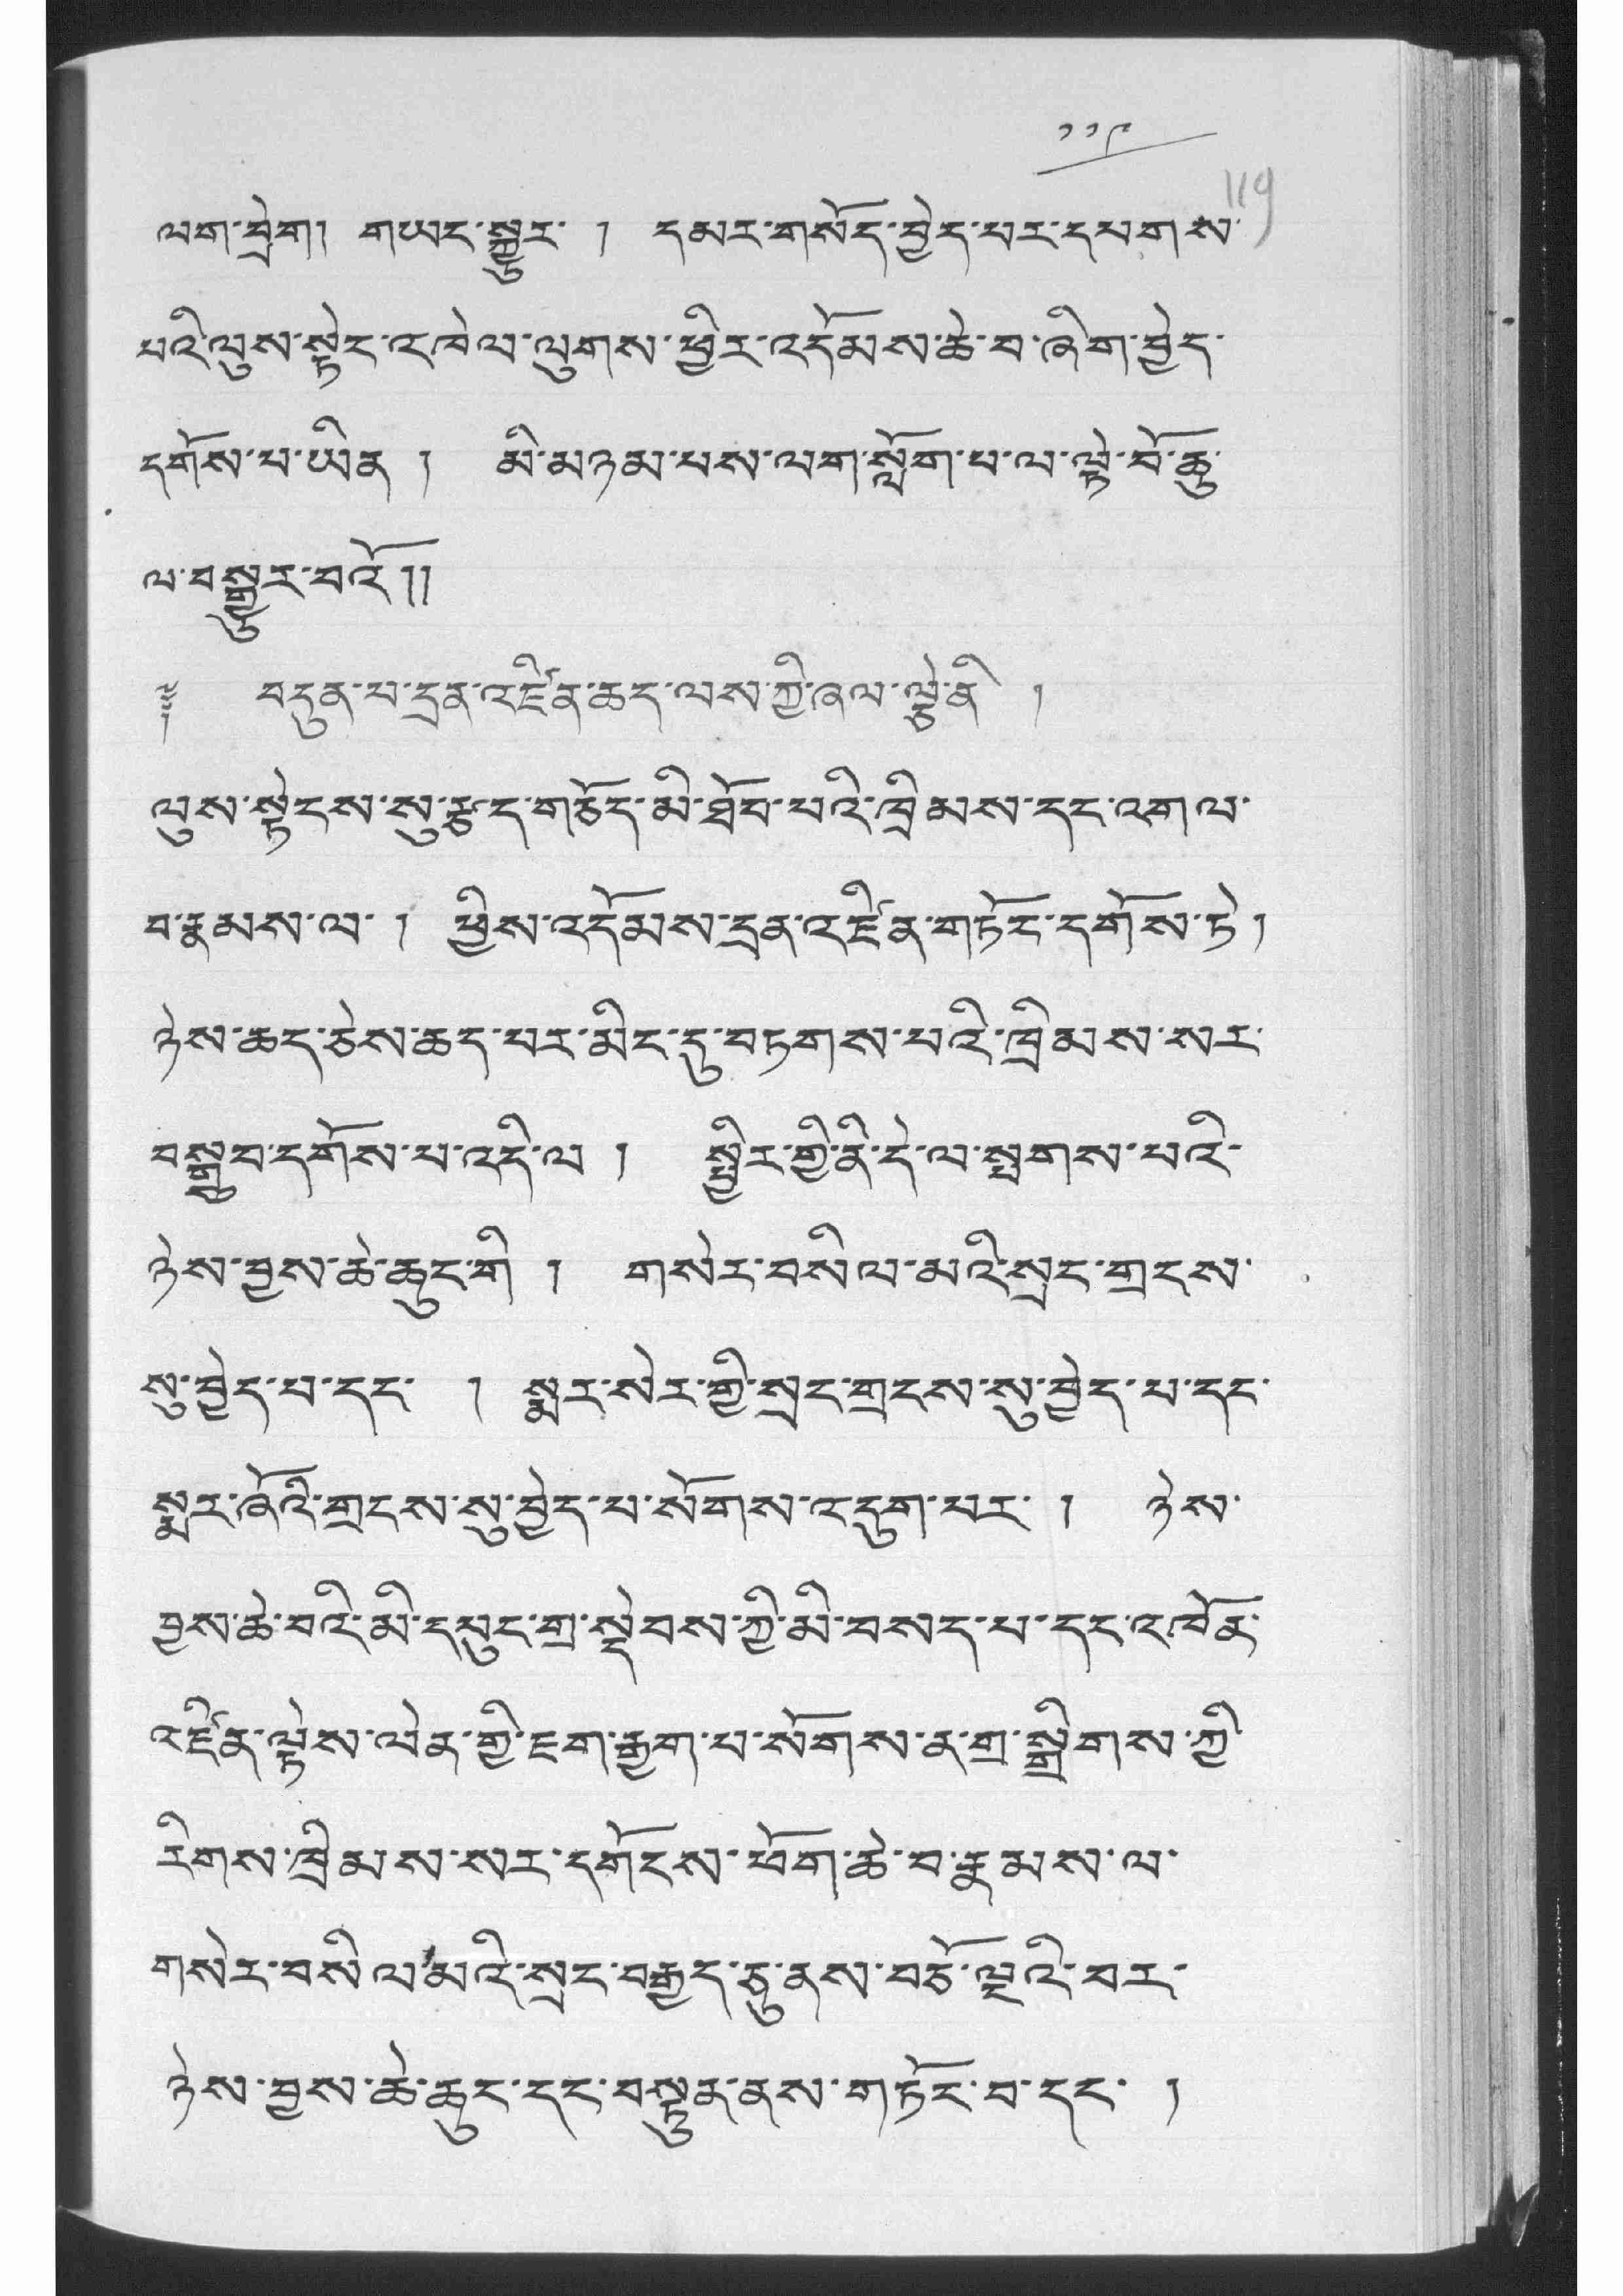 ༡༡༩
119
ལག་བྲེག། གཡང་སྐྱུར་ ། དམར་གསོད་བྱེད་པར་དཔགས་
པའི་ལུས་སྟེང་འཁེལ་ལུགས་ཕྱིར་འདོམས་ཆེ་བ་ཞིག་བྱེད་
དགོས་པ་ཡིན ། མི་མཉམ་པས་ལག་སློག་པ་ལ་ལྟེ་བོ་ཆུ་
ལ་བསྒྱུར་བའོ།།
༈ བདུན་པ་དྲན་འཛིན་ཆད་ལས་ཀྱི་ཞལ་ལྕེ་ནི །
ལུས་སྟེངས་སུ་རྩད་གཅོད་མི་ཐོབ་པའི་ཁྲིམས་དང་འགལ་
བ་རྣམས་ལ་ ། ཕྱིས་འདོམས་དྲན་འཛིན་གཏོང་དགོས་ཏེ །
ཉེས་ཆད་ཅེས་ཆད་པར་མིང་དུ་བཏགས་པའི་ཁྲིམས་སར་
བསྒྲུབ་དགོས་པ་འདི་ལ ། སྤྱིར་གྱི་ནི་དེ་ལ་སྤགས་པའི་
ཉེས་བྱས་ཆེ་ཆུང་གི ། གསེར་བསིལ་མའི་སྲང་གྲངས་
སུ་བྱེད་པ་དང་ ། སྨར་སེར་གྱི་སྲང་གྲངས་སུ་བྱེད་པ་དང་
སྨར་ཞོའི་གྲངས་སུ་བྱེད་པ་སོགས་འདུག་པར་ ། ཉེས་
བྱས་ཆེ་བའི་མི་དཔུང་གྲ་སྡེབས་ཀྱི་མི་བསད་པ་དང་འཁོན་
འཛིན་ལྟེས་ལེན་གྱི་ཇག་རྒྱག་པ་སོགས་ན་གྲ་སྒྲིགས་ཀྱི
རིགས་ཁྲིམས་སར་དགོངས་ཕོག་ཆེ་བ་རྣམས་ལ་
གསེར་བསིལ་མའི་སྲང་བརྒྱད་ཅུ་ནས་བཅོ་ལྔའི་བར་
ཉེས་བྱས་ཆེ་ཆུང་དང་བསྟུན་ནས་གཏོང་བ་དང་ །